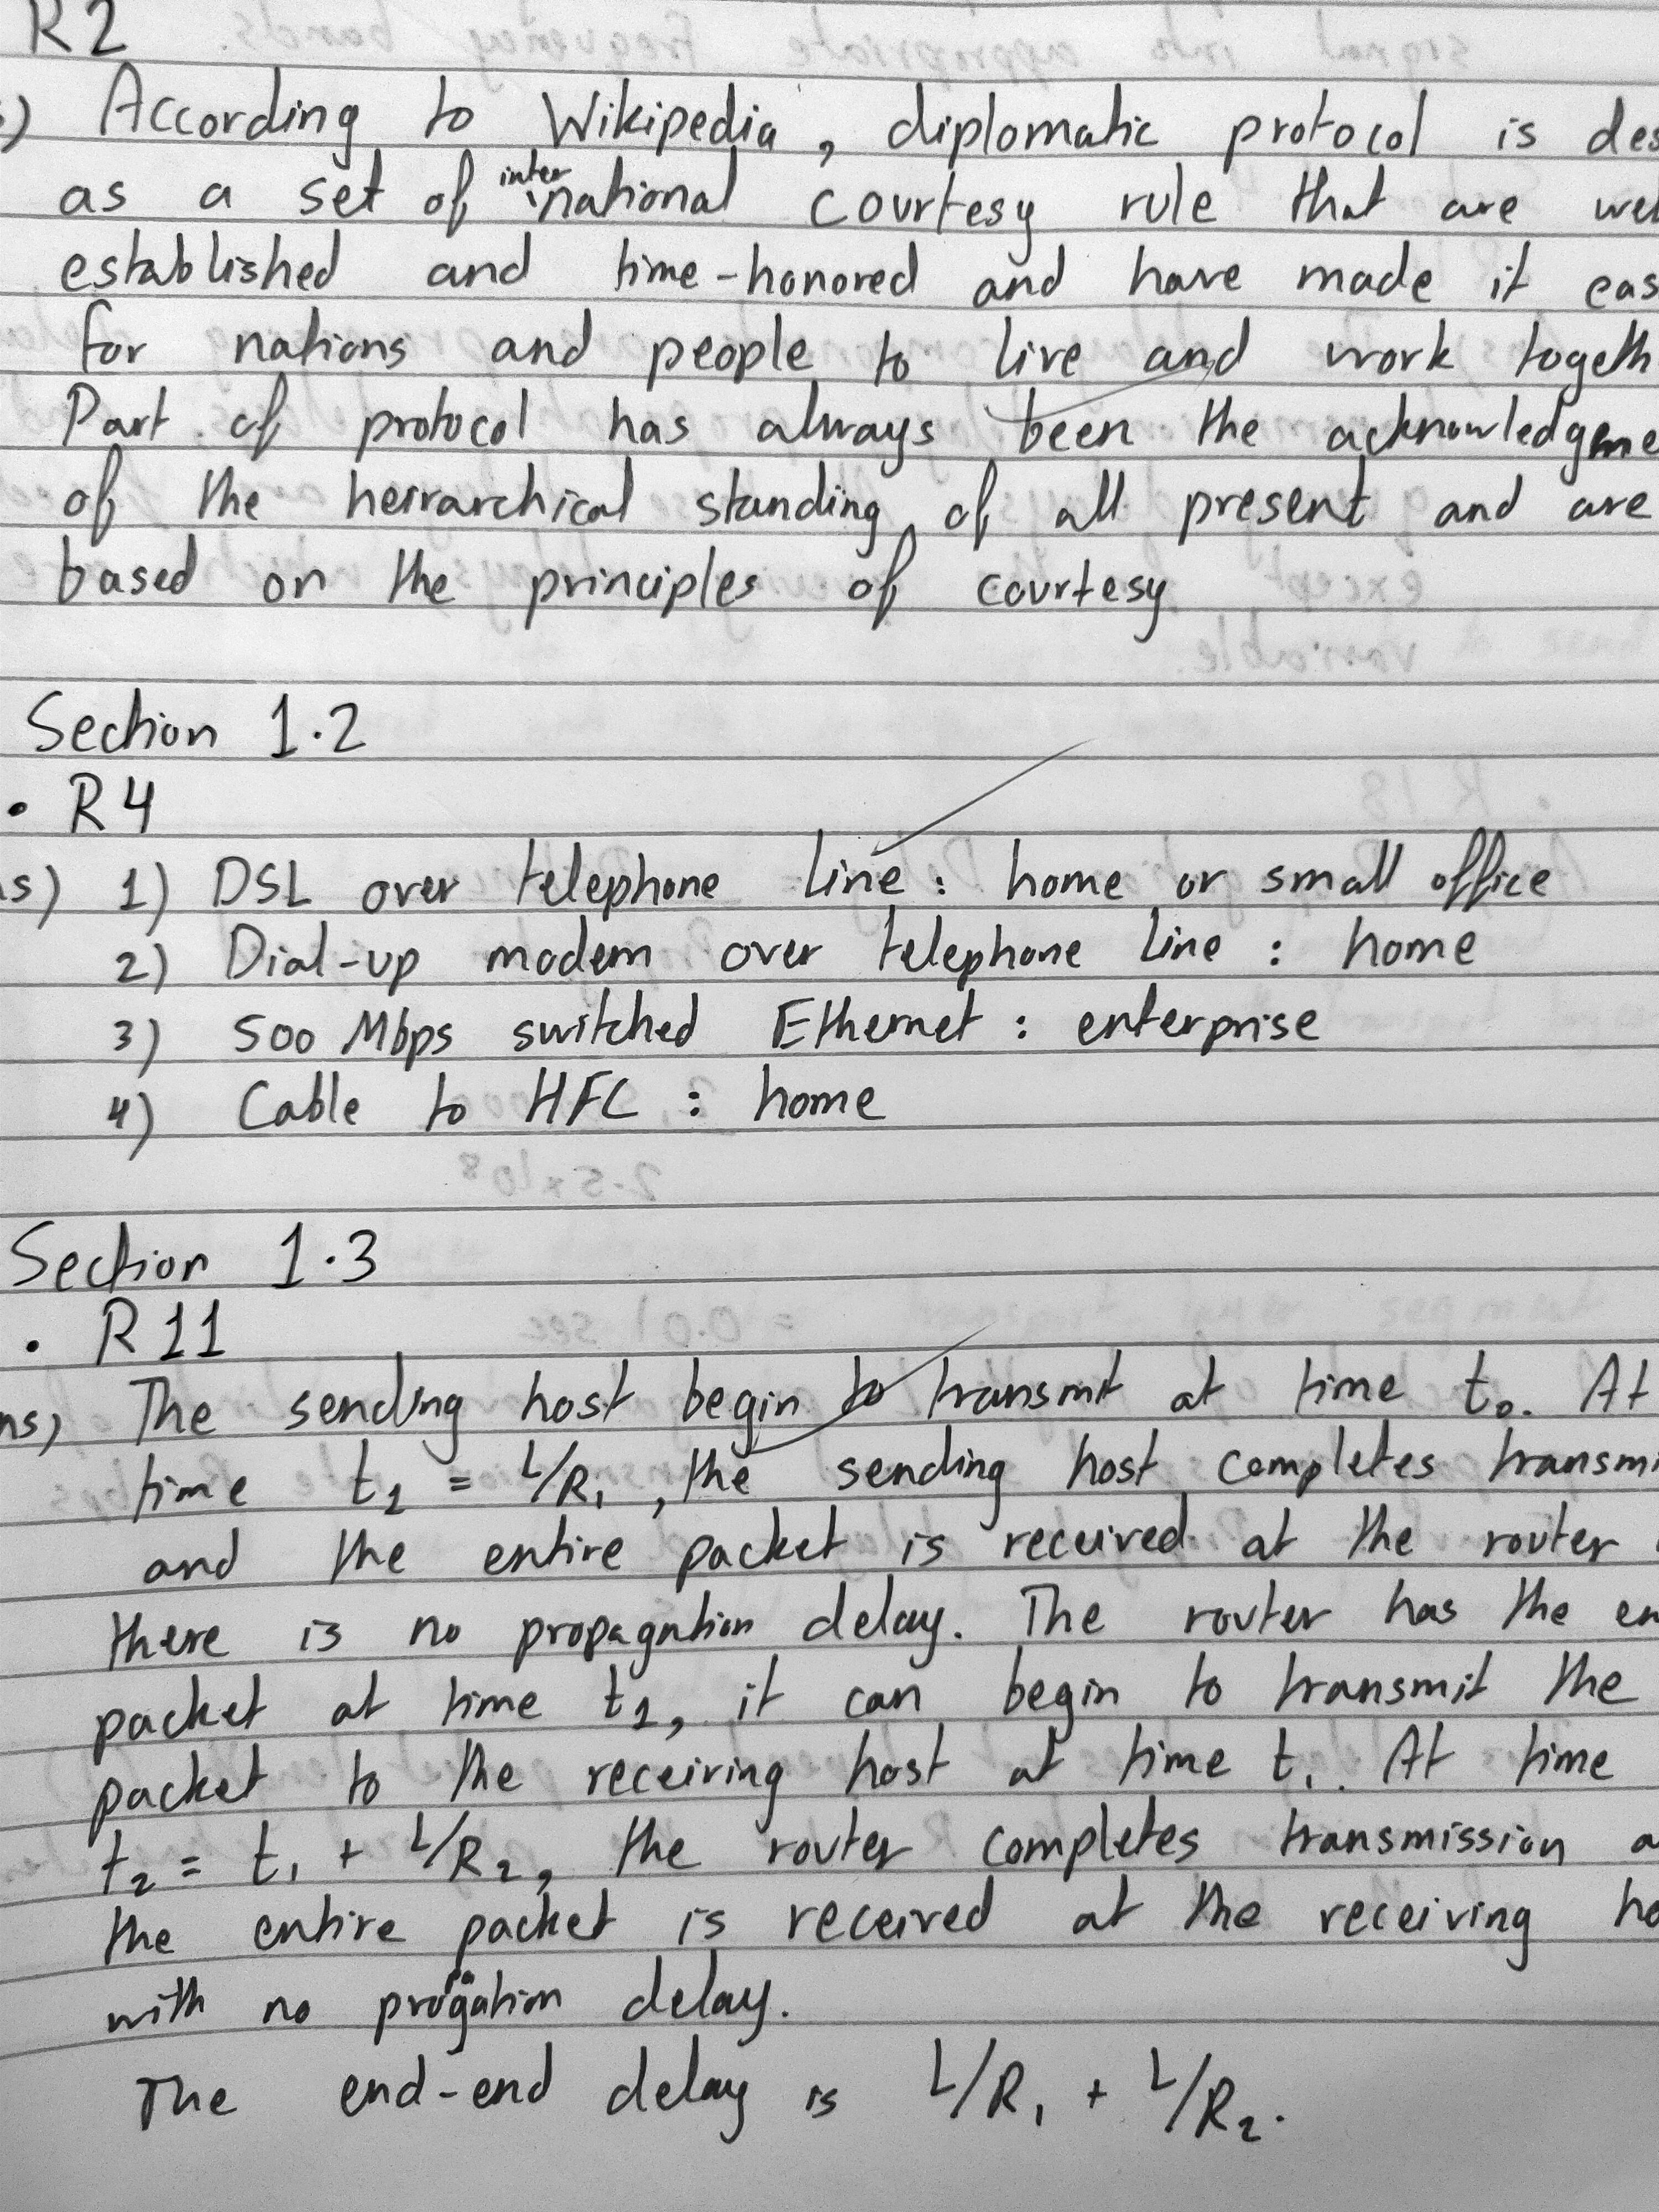 R2
s) According to Wikipedia, diplomatic protocol is des
as a set of international courtesy rule that are wel
established and time-honored and have made it eas
for nations and people to live and work togeth
Part of protocol has always been the acknowledgme
of the heirarchical standing of all present and are
based on the principles of courtesy
Section 1.2
• R4
ns) 1) DSL over telephone line : home or small office
2) Dial-up modem over telephone line : home
3) 500 Mbps switched Ethernet : enterprise
4) Cable to HFC : home
Section 1.3
• R11
ns) The sending host begin to transmit at time t₀. At
time t₁ = L/R₁, the sending host completes transmi
and the entire packet is received at the router
there is no propagation delay. The router has the en
packet at time t₁, it can begin to transmit the
packet to the receiving host at time t₁. At time
t₂ = t₁ + L/R₂, the router completes transmission a
the entire packet is received at the receiving ho
with no propagation delay.
The end-end delay is L/R₁ + L/R₂.